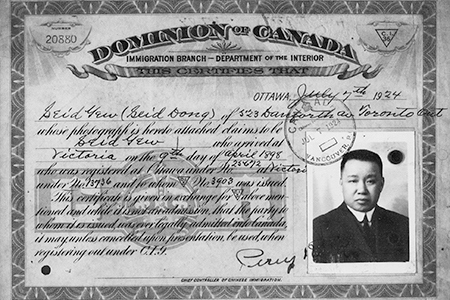 NUMBER
20880
C.I.
36
DOMINION OF CANADA
IMMIGRATION BRANCH — DEPARTMENT OF THE INTERIOR
THIS CERTIFIES THAT
OTTAWA, July 7th 1924
Seid Yew (Seid Dong) of 523 Danforth av Toronto Ont
whose photograph is hereto attached claims to be
Seid Yew who arrived at
Victoria on the 9th day of april 1898
who was registered at Ottawa under No at Victoria
under No and to whom No 3903 was issued.
This certificate is given in exchange for above men-
tioned and while it is not an admission, that the party to
whom it is issued was ever legally admitted into Canada,
it may, unless cancelled upon presentation, be used, when
registering out under C.I.9.
VANCOUVER
Percy
CHIEF CONTROLLER OF CHINESE IMMIGRATION.